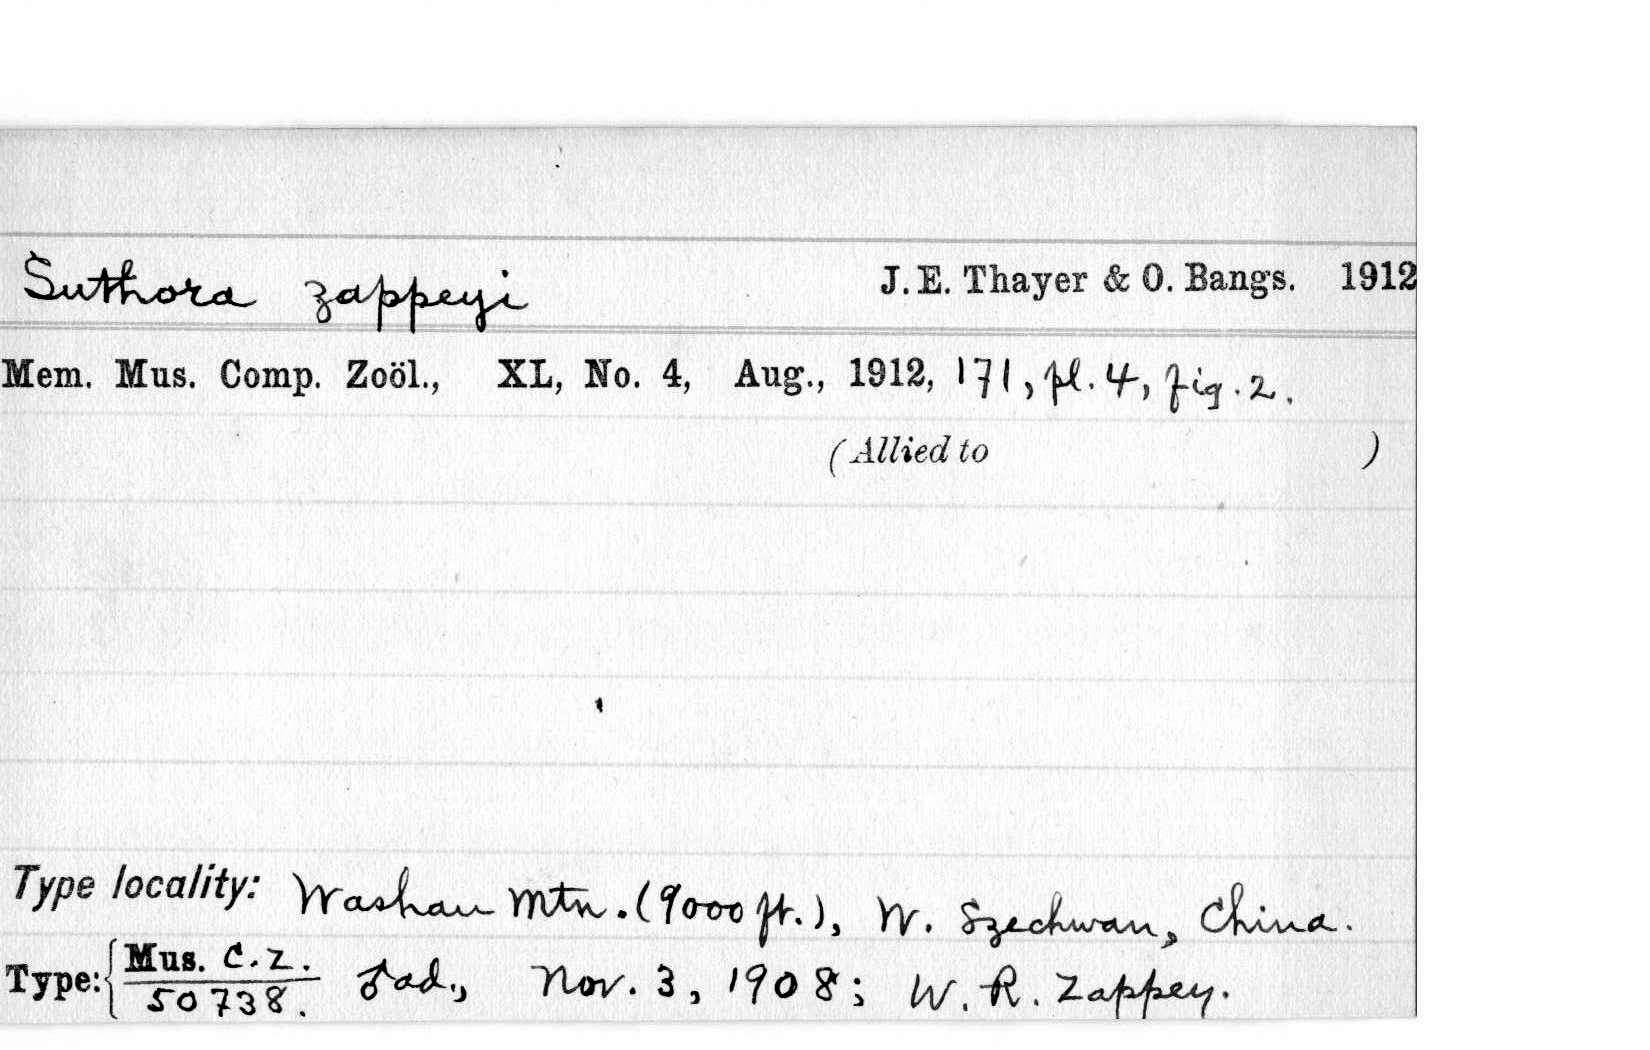 Suthora zappeyi J. E. Thayer & O. Bangs. 1912
Mem. Mus. Comp. Zoöl., XL, No. 4, Aug., 1912, 171, pl. 4, fig. 2.
(Allied to )
Type locality: Washan Mtn. (9000 ft.), W. Szechwan, China.
Type: { Mus. C. Z. ♂ ad., Nov. 3, 1908; W. R. Zappey.
50738.